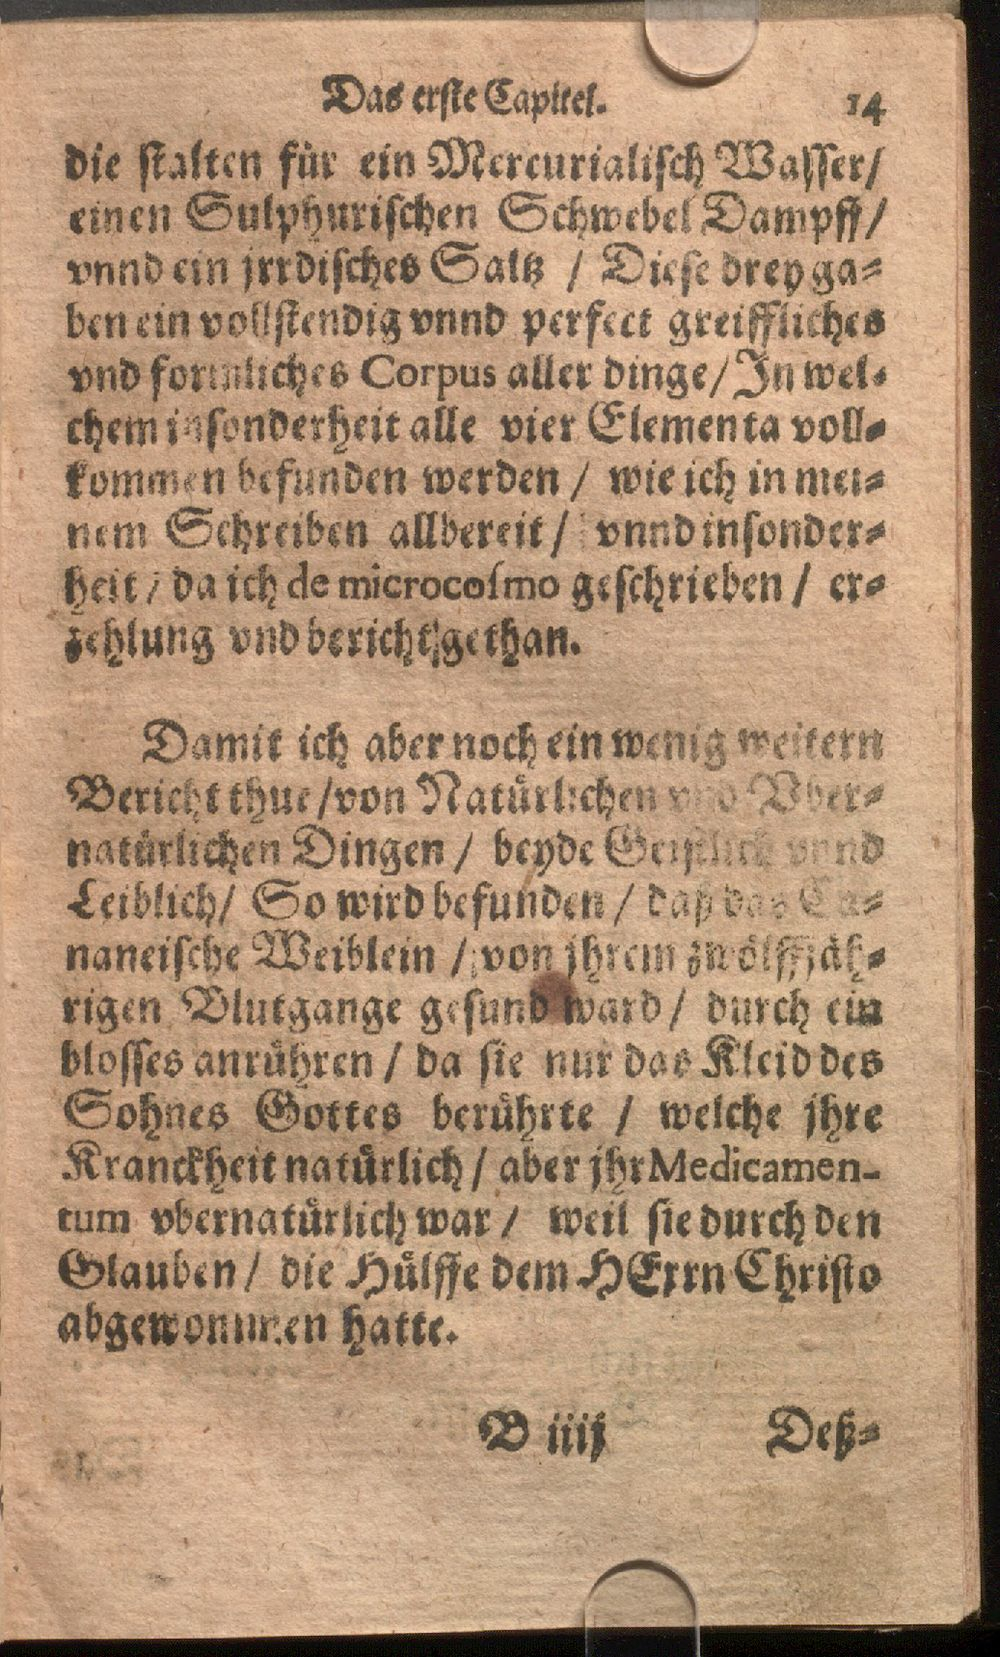 Das erste Capitel. 14
die stalten für ein Mercurialisch Wasser/
einen Sulphurischen Schwebel Dampff/
vnnd ein jrrdisches Saltz / Diese drey ga-
ben ein vollstendig vnnd perfect greiffliches
vnd formliches Corpus aller dinge/ In wel-
chem insonderheit alle vier Elementa voll-
kommen befunden werden / wie ich in mei-
nem Schreiben allbereit / vnnd insonder-
heit / da ich de microcosmo geschrieben / er-
zehlung vnd bericht gethan.
Damit ich aber noch ein wenig weitern
Bericht thue /von Natürlichen vnd Vber-
natürlichen Dingen / beyde Geistlich vnnd
Leiblich/ So wird befunden / daß das Ca-
naneische Weiblein / von jhrem zwölffjäh-
rigen Blutgange gesund ward / durch ein
blosses anrühren / da sie nur das Kleid des
Sohnes Gottes berührte / welche jhre
Kranckheit natürlich / aber jhr Medicamen-
tum vbernatürlich war / weil sie durch den
Glauben / die Hülffe dem HErrn Christo
abgewonnen hatte.
B iiij Deß-